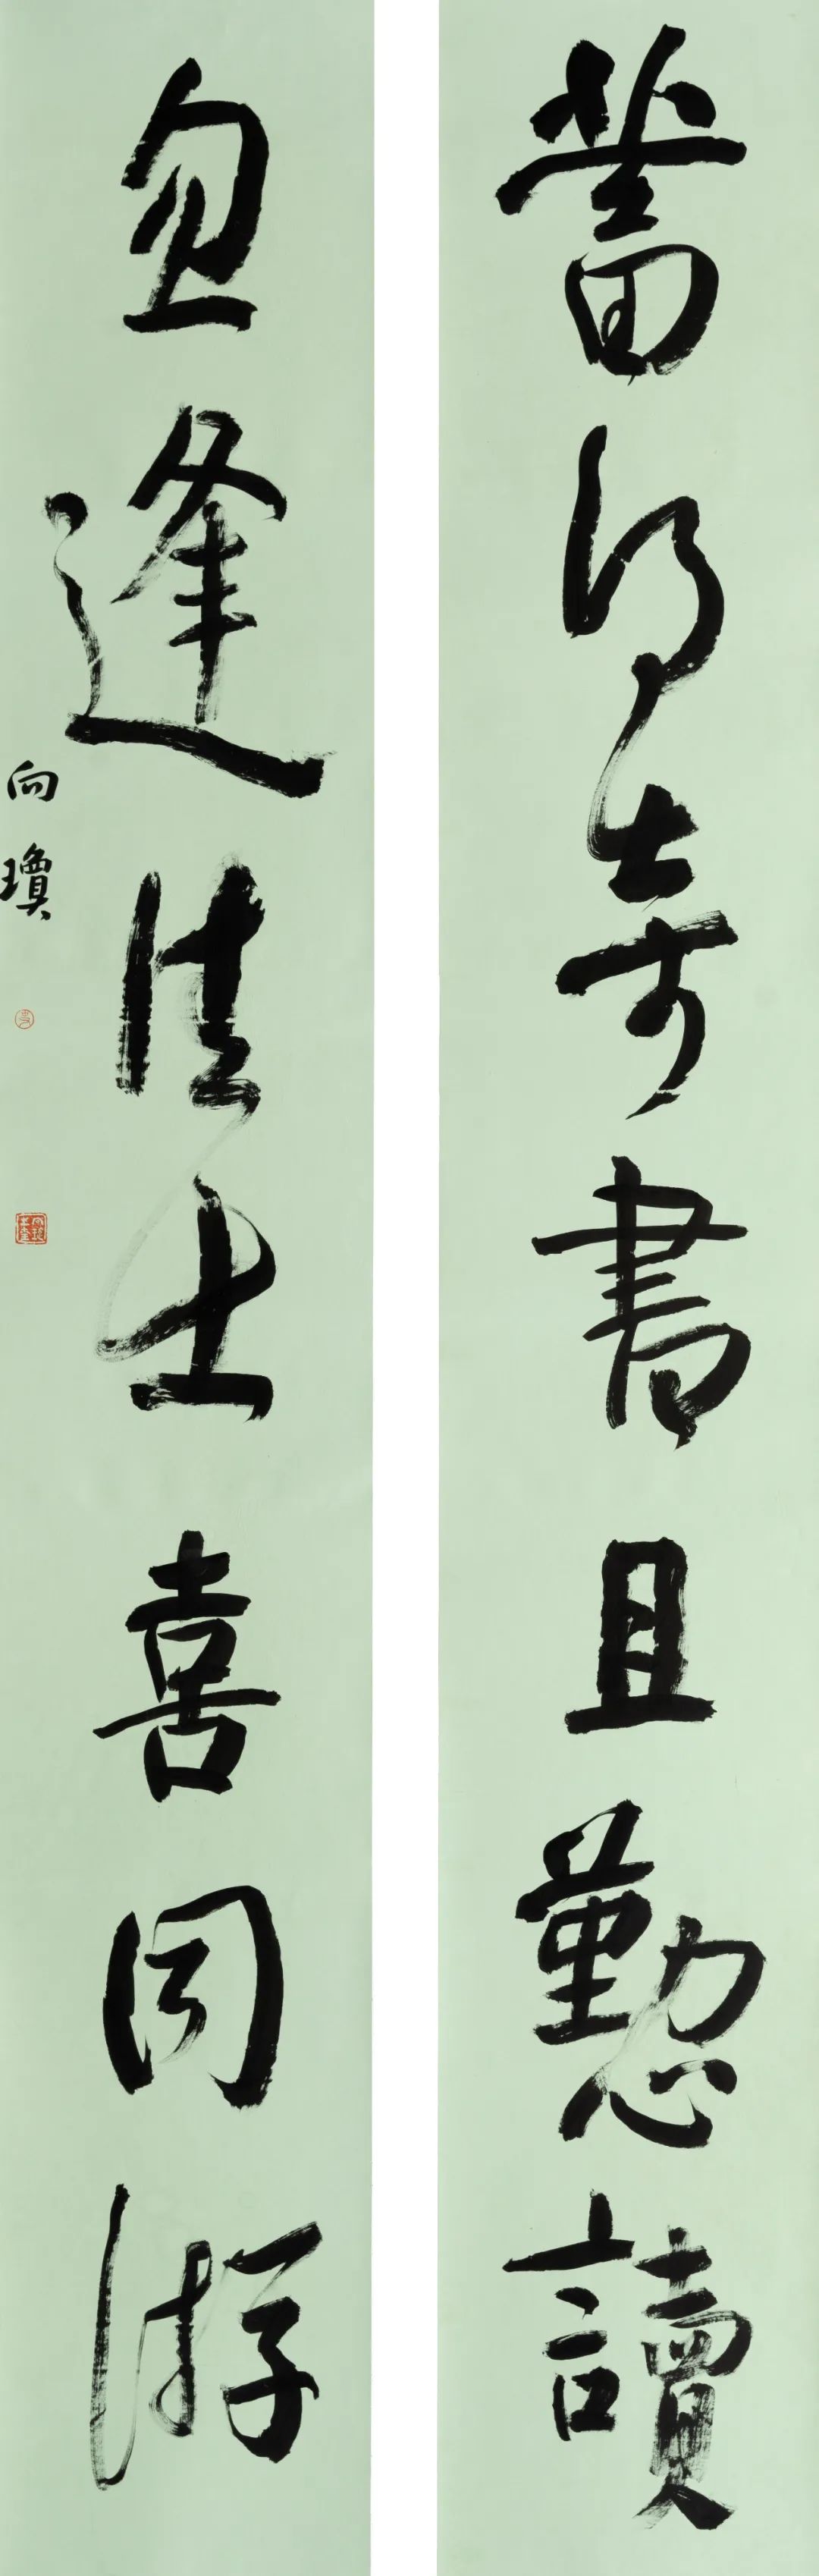 蓄得奇書且懃讀
忽逢佳士喜同游
向瓊